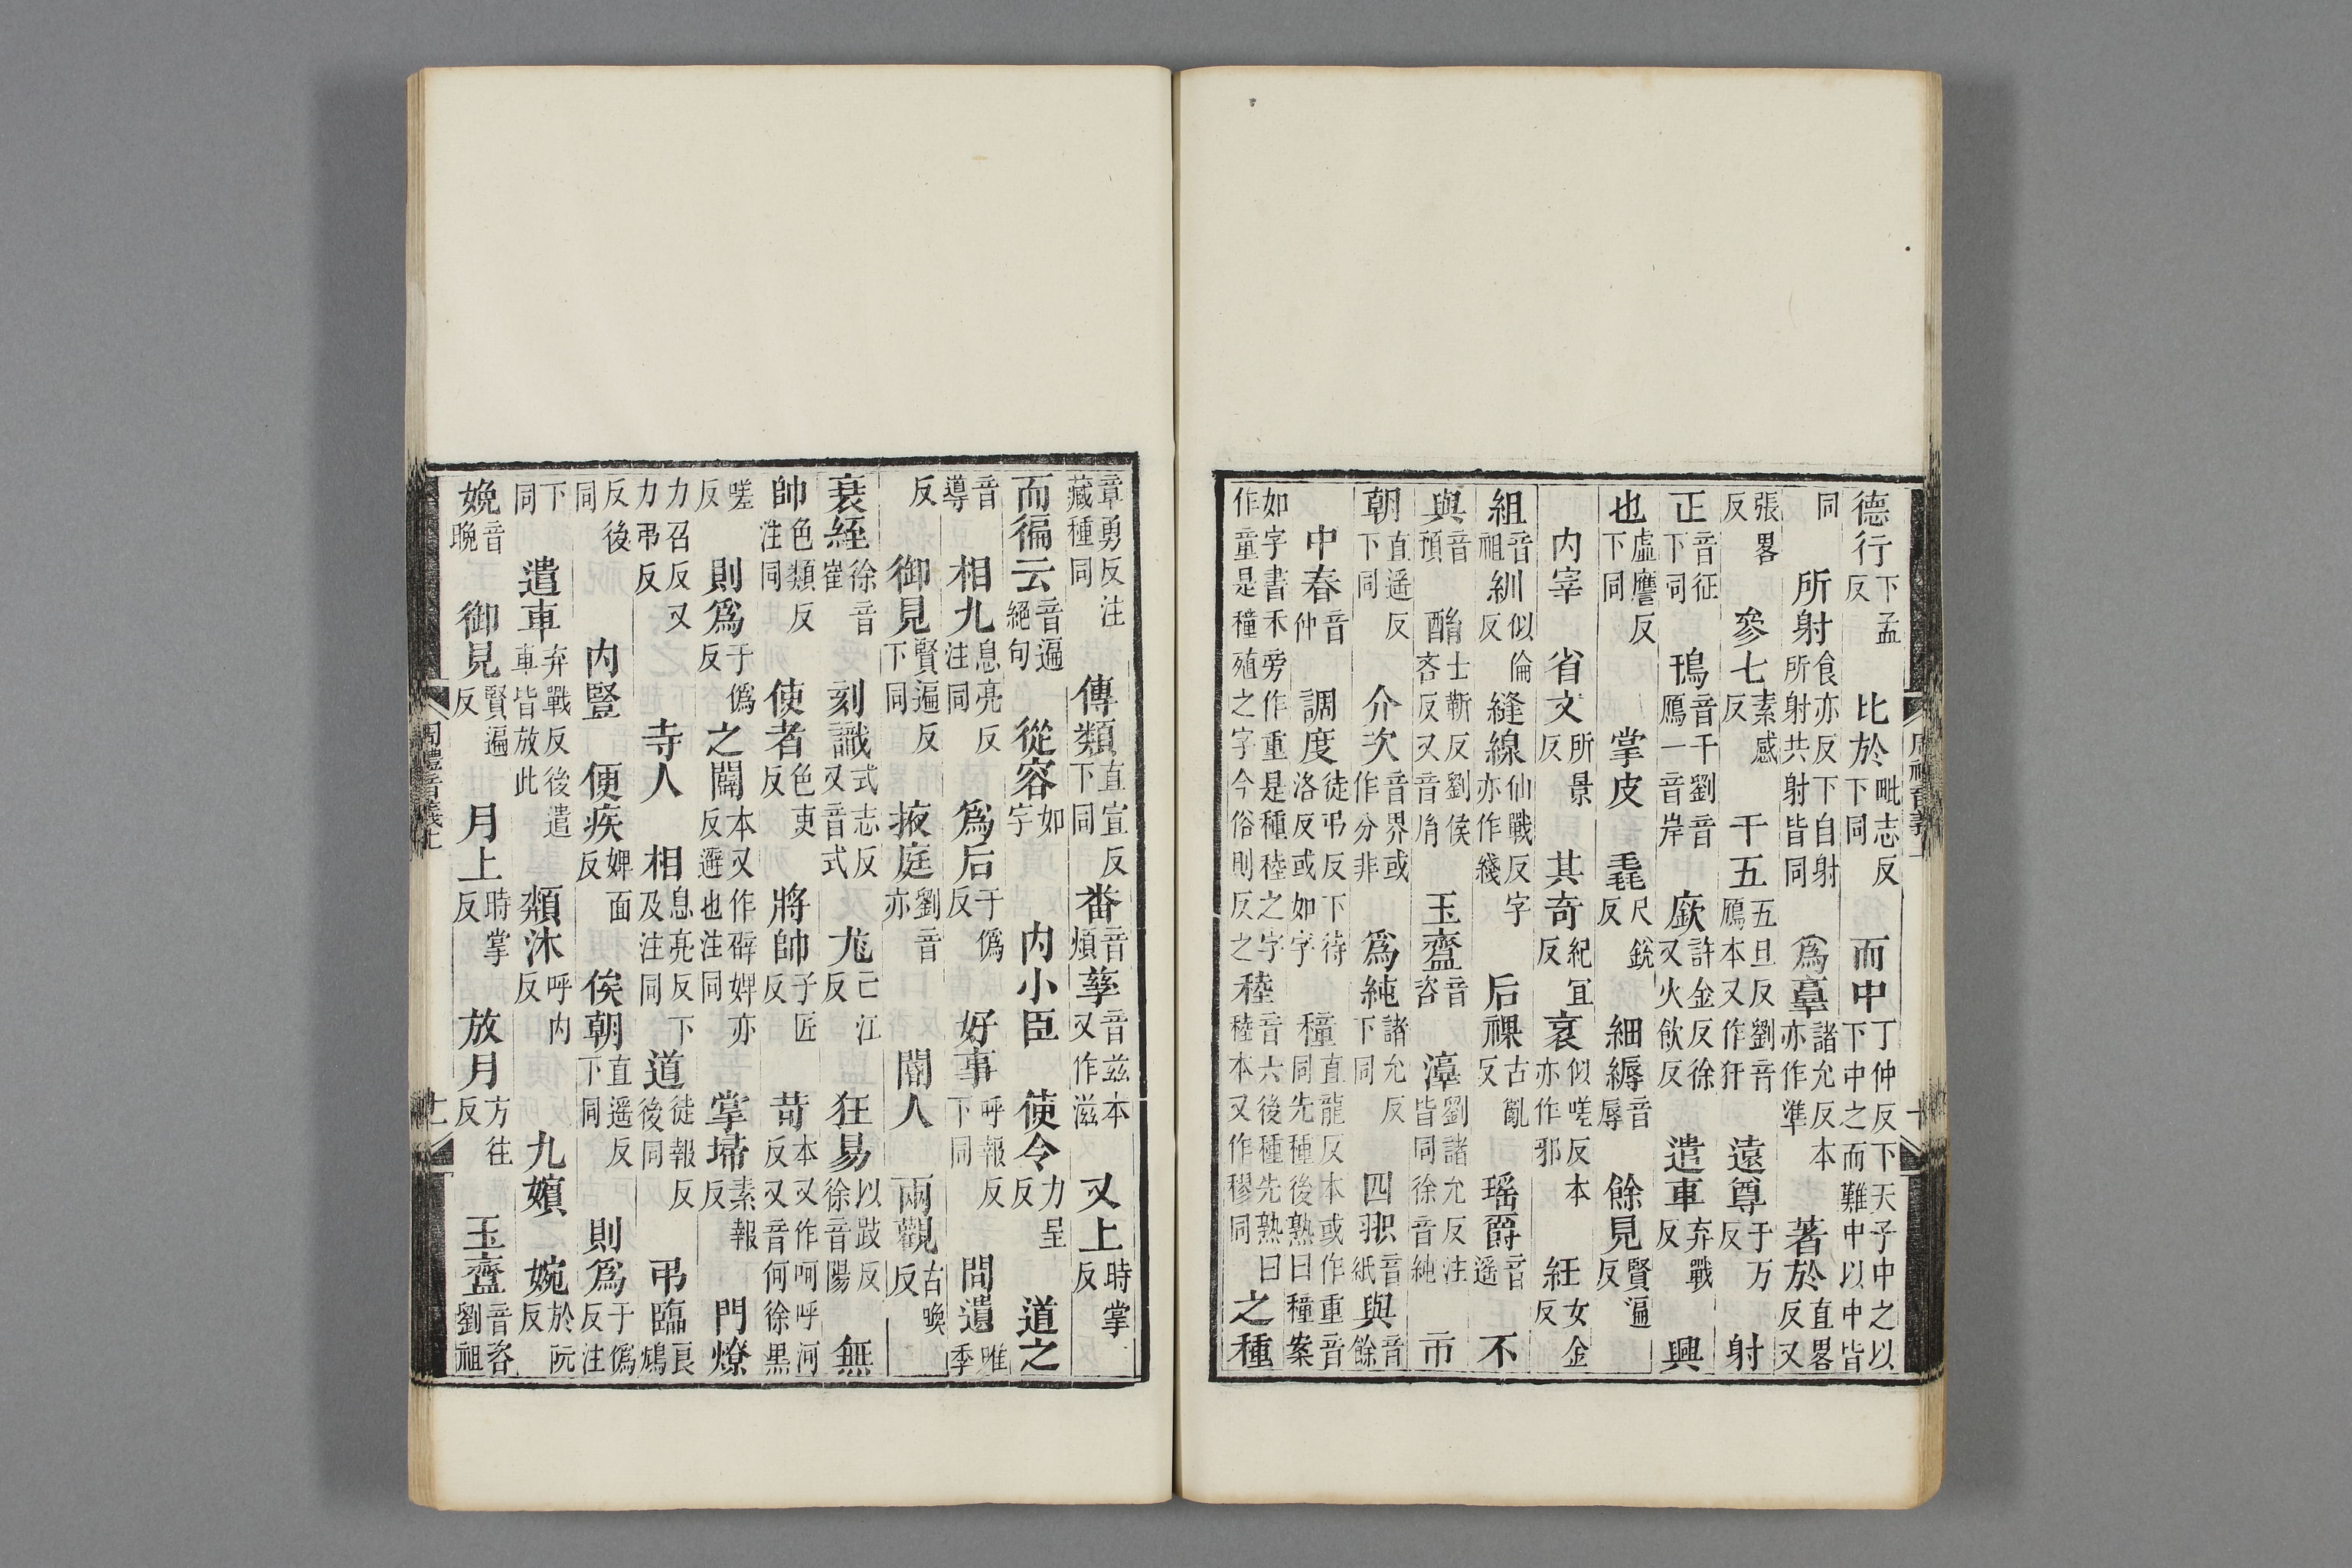 德行下孟反 比於毗志反下同 而中丁仲反下天子中之以下中之而難中以中皆
同 所射食亦反下自射所射共射皆同 爲臺諸允反本亦作準 著於直畧反又
張畧反 參七素感反 干五五旦反劉音鴈本又作犴 遠尊于万反 射
正音征下同 鳱音干劉音鴈一音岸 廞許金反徐又火飲反 遣車弃戰反 興
也虛膺反下同 掌皮 毳尺銳反 細縟音辱 餘見賢遍反
内宰 省文所景反 其奇紀宜反 衺似嗟反本亦作邪 紝女金反
組音祖 紃似倫反 縫線仙戰反字亦作綫 后祼古亂反 瑶爵音遥 不
與音預 酳士靳反劉侯吝反又音胤 玉齍音咨 淳劉諸允反注皆同徐音純 市
朝直遥反下同 介次音界或作分非 爲純諸允反下同 四咫音紙 與音餘
中春音仲 調度徒弔反下待洛反或如字 穜直龍反本或作重音同先種後熟曰穜案
如字書禾旁作重是種稑之字作童是穜殖之字今俗則反之 稑音六後種先熟曰稑本又作穋同 之種
章勇反注藏種同 傳類直宜反下同 蕃音煩 孳音兹本又作滋 又上時掌反
而徧云音遍絕句 從容如字 内小臣 使令力呈反 道之
音導 相九息亮反注同 爲后于僞反 好事呼報反下同 問遺唯季
反 御見賢遍反下同 掖庭劉音亦 閽人 兩觀古喚反
衰絰徐音崔 刻識式志反又音式 尨己江反 狂易以豉反徐音陽 無
帥色類反注同 使者色吏反 將帥子匠反 苛本又作呵呼河反又音何徐黑
嗟反 則爲于僞反 之闢本又作辟婢亦反避也注同 掌埽素報反 門燎
力召反又力弔反 寺人 相息亮反下及注同 道徒報反後同 弔臨良鴆
反後同 内豎 便疾婢面反 俟朝直遥反下同 則爲于僞反注
下同 遣車弃戰反後遣車皆放此 頮沐呼内反 九嬪 婉於阮反
娩音晚 御見賢遍反 月上時掌反 放月方往反 玉齍音咨劉祖
周禮音義上